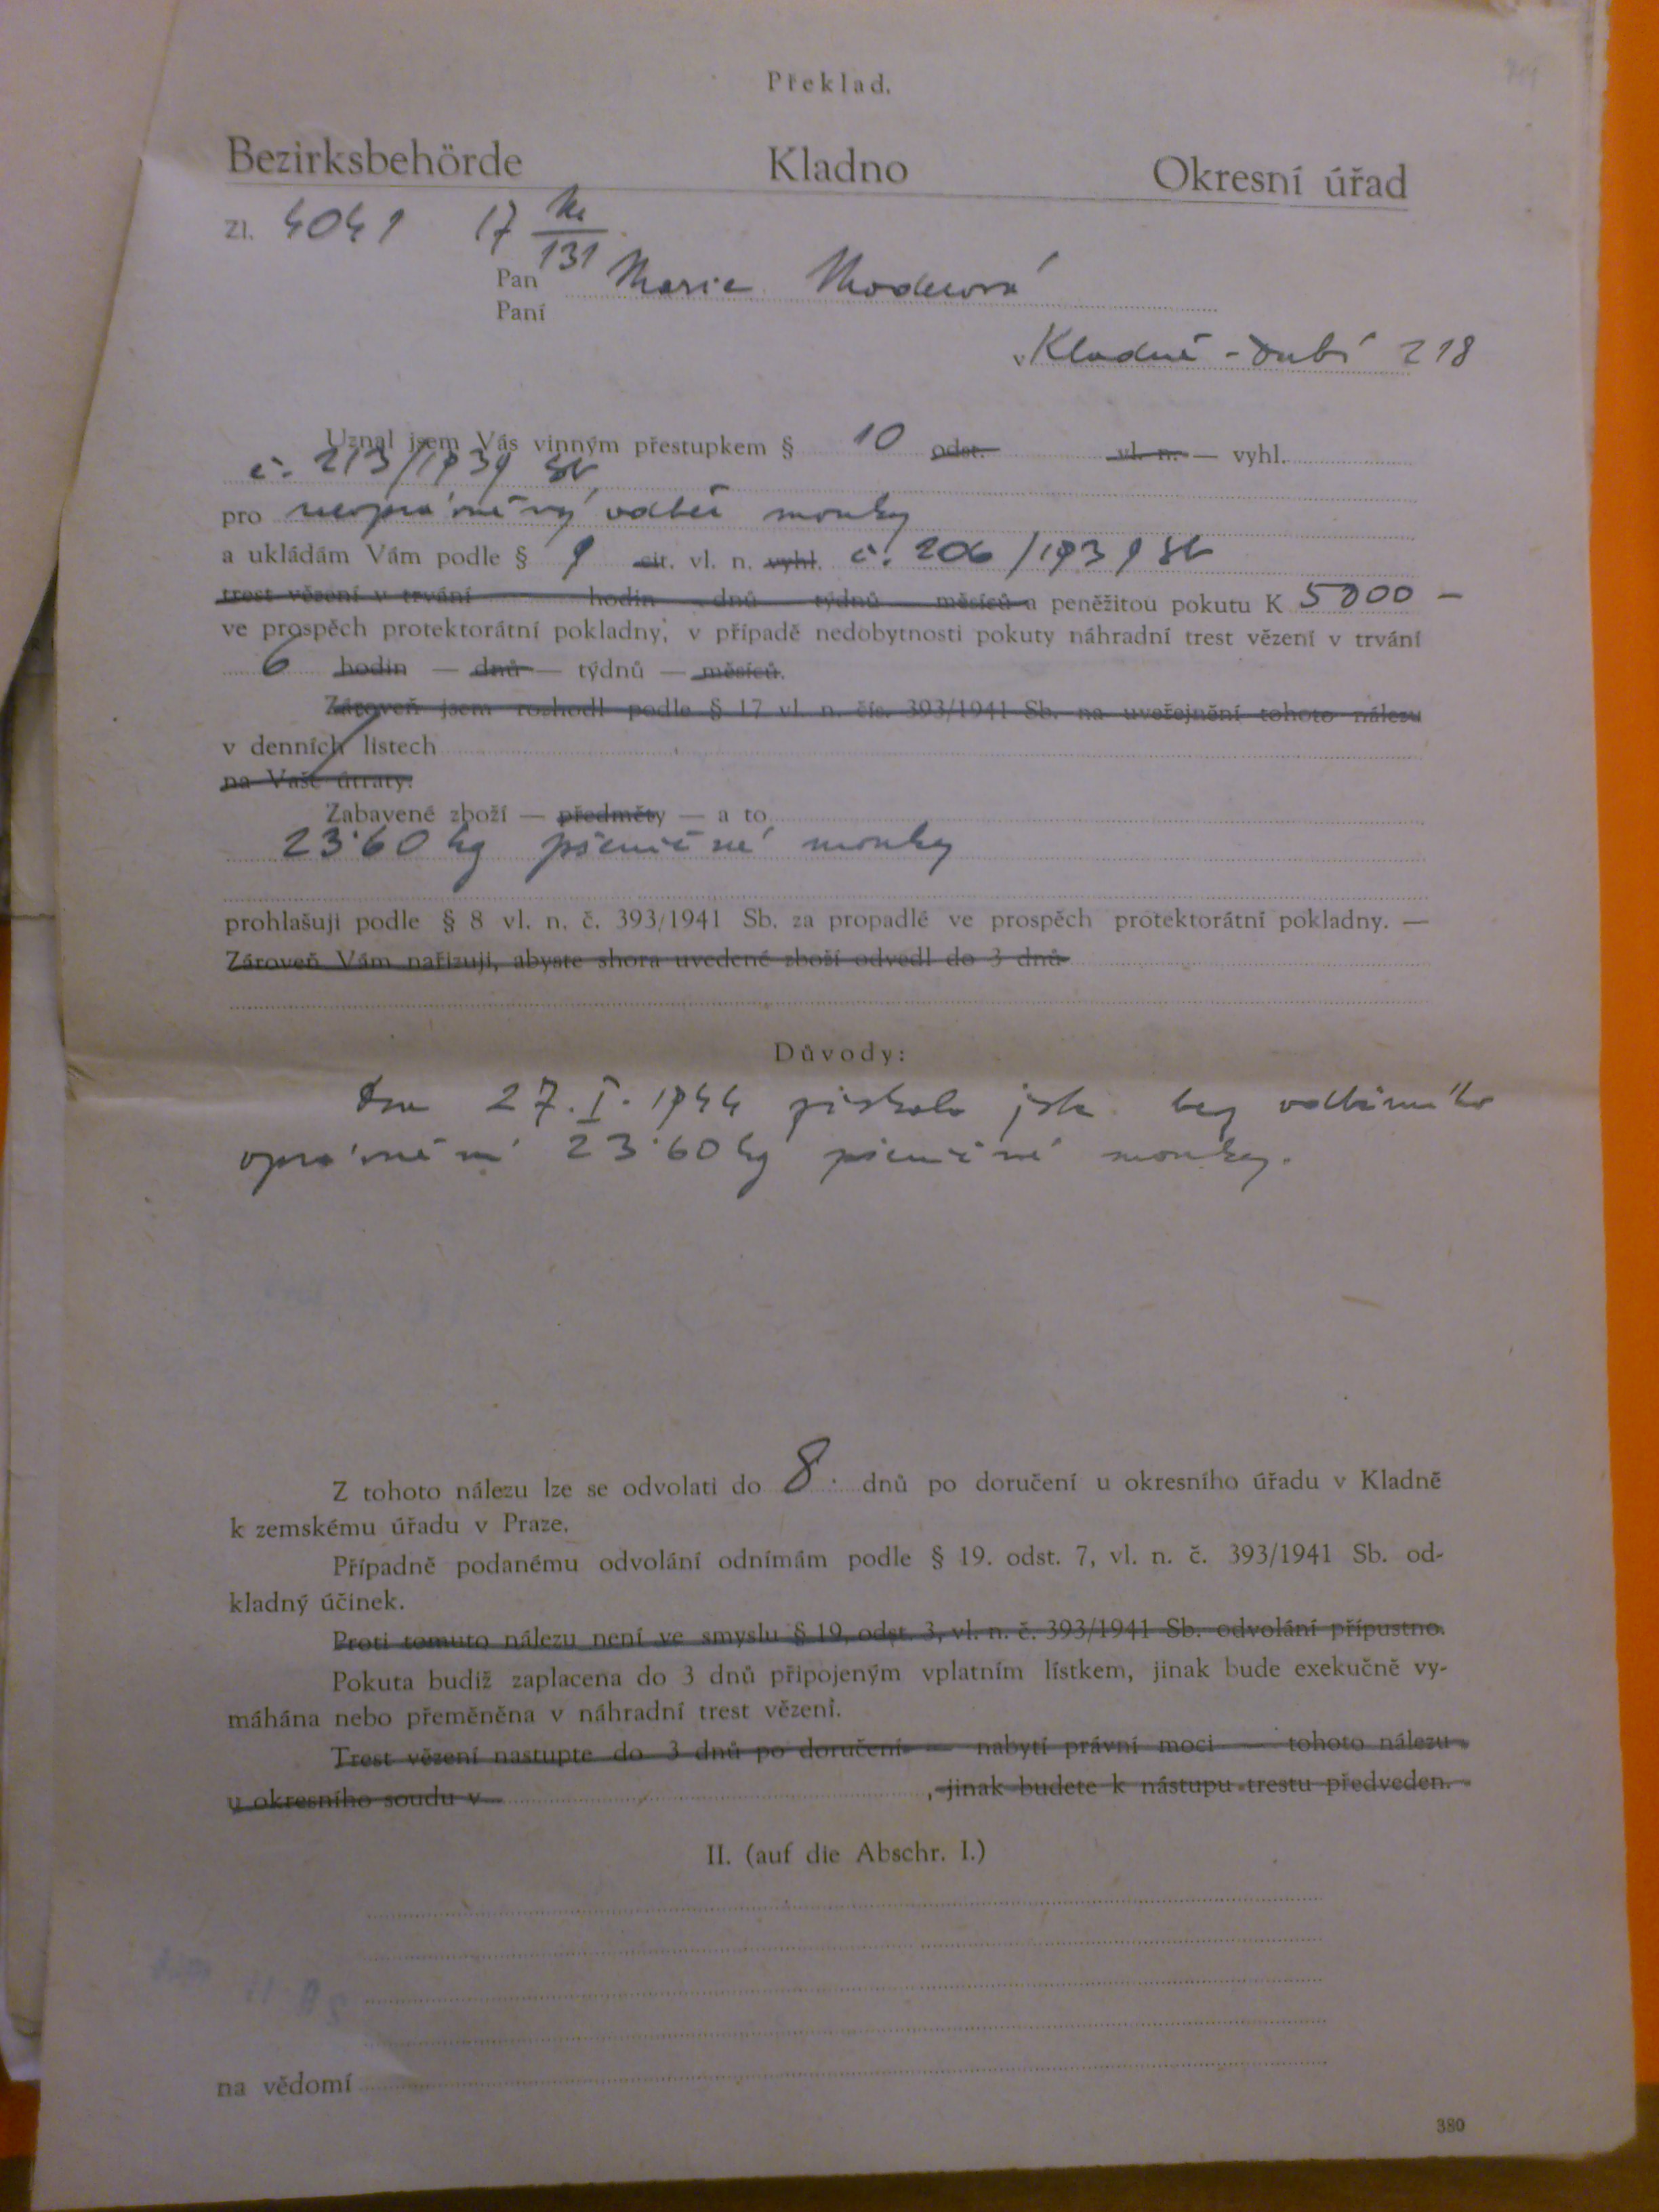 Překlad.
Bezirksbehörde Kladno Okresní úřad
Zl. 4041 17
131
Pan Marie
Paní
v Kladně - Dubí 218
Uznal jsem Vás vinným přestupkem § 10 odst. vl. n. — vyhl.
č. 213/1939 Sb.
pro neoprávněný odběr mouky
a ukládám Vám podle § 9 cit. vl. n. vyhl. č. 206/1939 Sb
trest vězení v trvání hodin dnů týdnů měsíců a peněžitou pokutu K 5000 —
ve prospěch protektorátní pokladny, v případě nedobytnosti pokuty náhradní trest vězení v trvání
6 hodin — dnů — týdnů — měsíců.
Zároveň jsem rozhodl podle § 17 vl. n. čís. 393/1941 Sb. na uveřejnění tohoto nálezu
v denních listech
na Vaše útraty.
Zabavené zboží — předměty — a to
23·60 kg pšeničné mouky
prohlašuji podle § 8 vl. n. č. 393/1941 Sb. za propadlé ve prospěch protektorátní pokladny. —
Zároveň Vám nařizuji, abyste shora uvedené zboží odvedl do 3 dnů
Důvody:
Dne 27. I. 1944 získala jste bez odběrního
oprávnění 23·60 kg pšeničné mouky.
Z tohoto nálezu lze se odvolati do 8. dnů po doručení u okresního úřadu v Kladně
k zemskému úřadu v Praze.
Případně podanému odvolání odnímám podle § 19. odst. 7, vl. n. č. 393/1941 Sb. od-
kladný účinek.
Proti tomuto nálezu není ve smyslu § 19, odst. 3, vl. n. č. 393/1941 Sb. odvolání přípustno.
Pokuta budiž zaplacena do 3 dnů připojeným vplatním lístkem, jinak bude exekučně vy-
máhána nebo přeměněna v náhradní trest vězení.
Trest vězení nastupte do 3 dnů po doručení — nabytí právní moci — tohoto nálezu
u okresního soudu v , jinak budete k nástupu trestu předveden.
II. (auf die Abschr. I.)
na vědomí
380